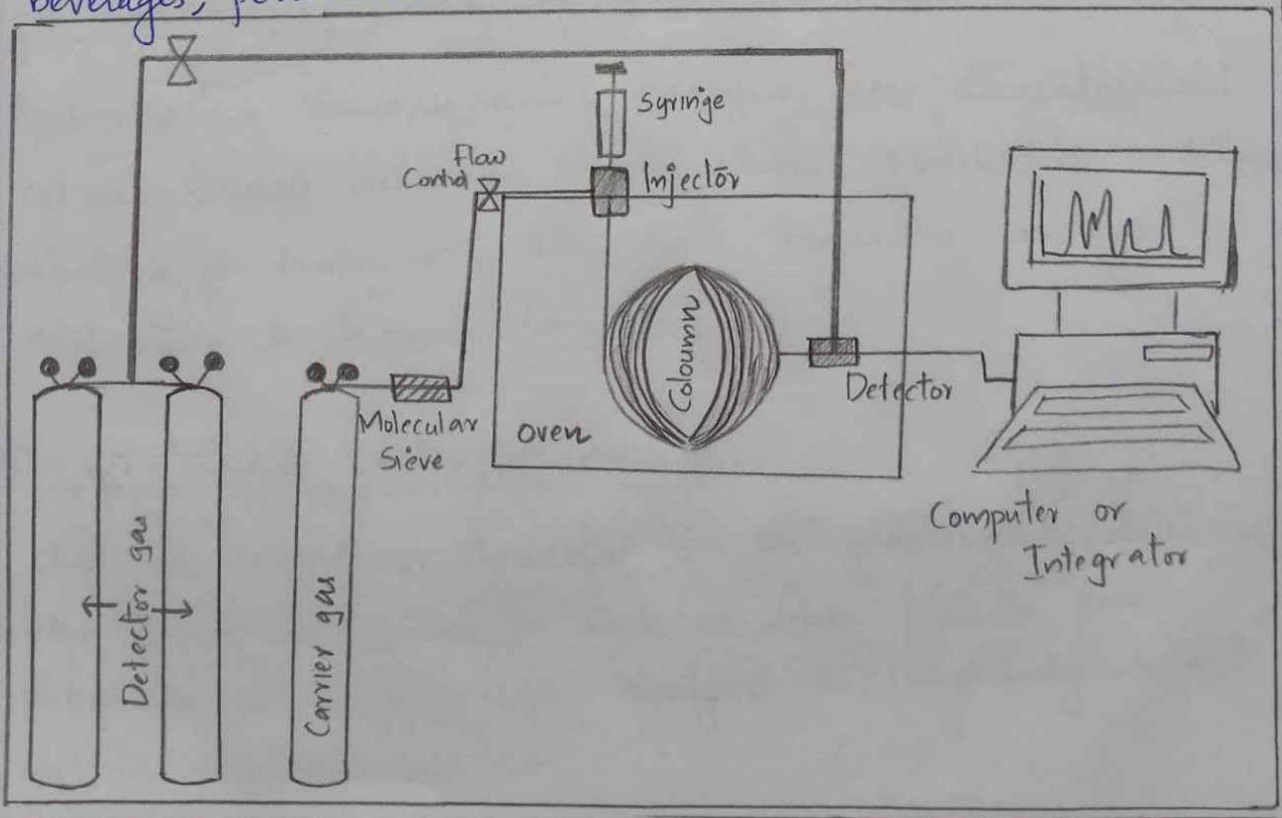 beverages,
Syringe
Flow
Control
Injector
Coloumn
Detector
Molecular
Sieve
oven
Computer or
Integrator
Detector gas
Carrier gas